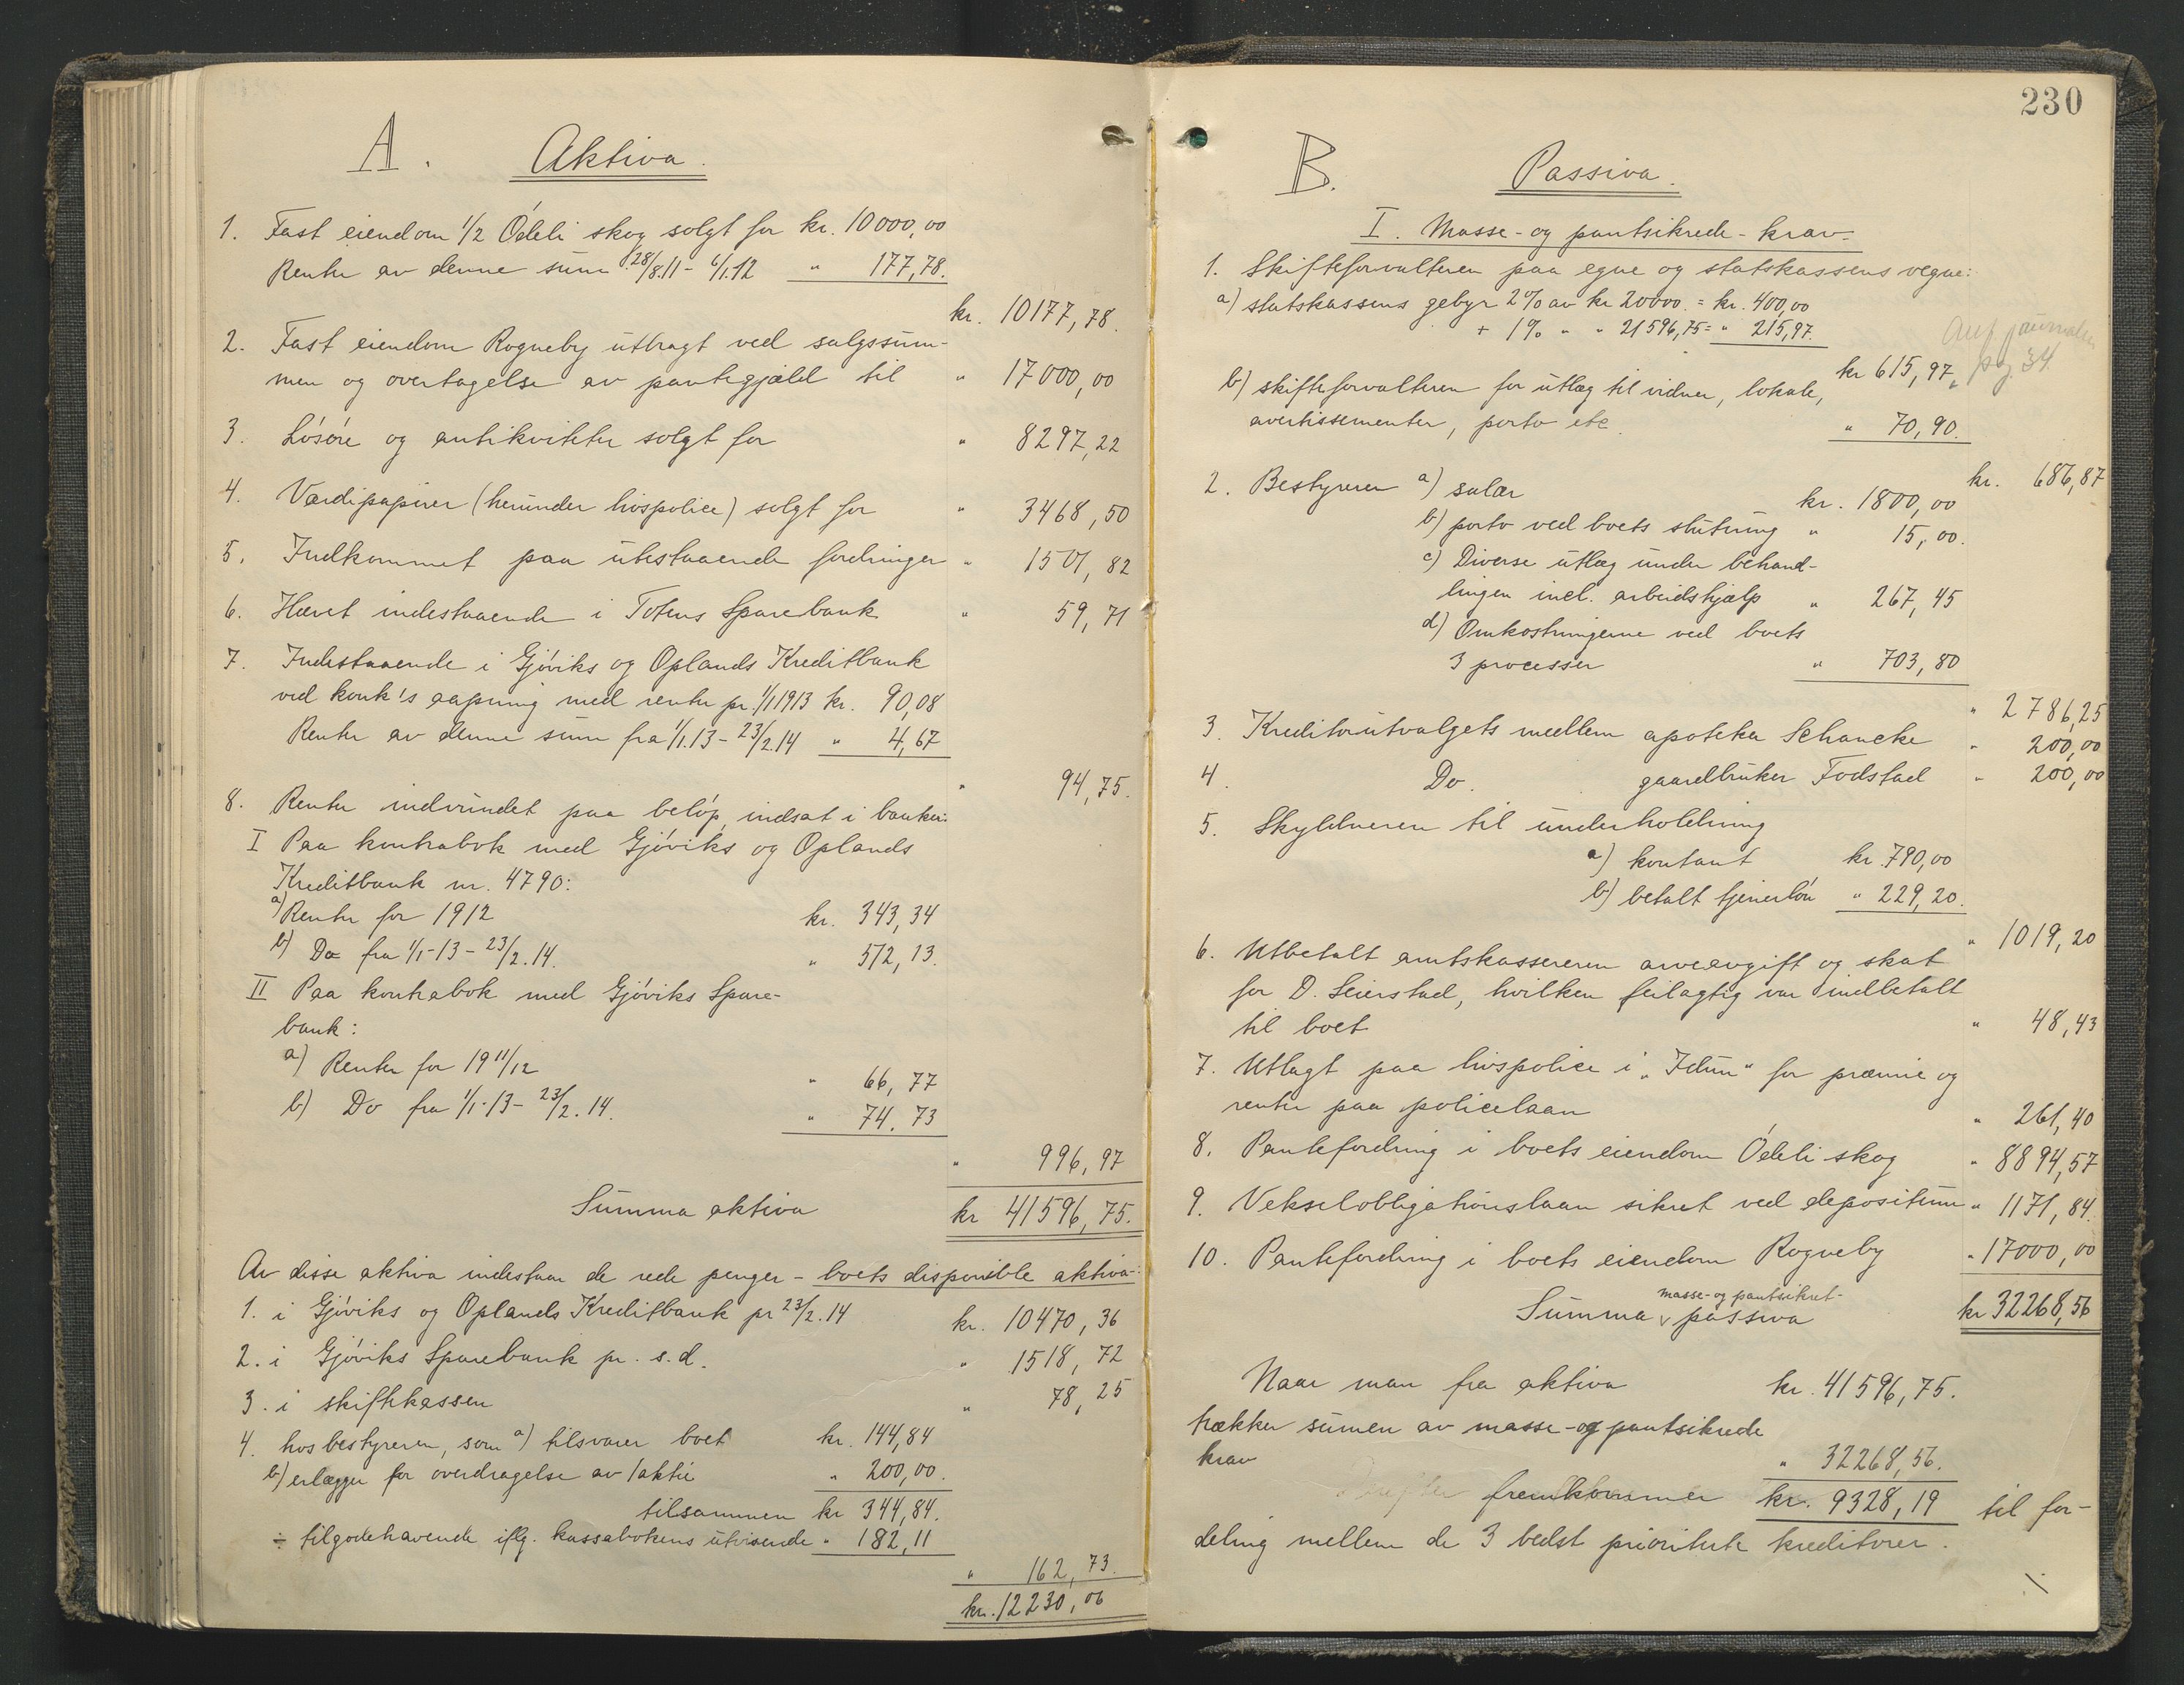 A. Aktiva.
1. Fast eiendom 1/2 Ödeli skog solgt for kr. 10000,00
Renter av denne sum 28/8.11 - 6/1.12 " 177,78.
kr. 10177,78.
2. Fast eiendom Rogneby utbragt ved salgssum-
men og overtagelse av pantegjæld til " 17000,00
3. Lösöre og antikviteter solgt for " 8297,22
4. Værdipapirer (herunder livspolice) solgt for " 3468,50
5. Indkommet paa utestaaende fordringer " 1501,82
6. Hævet indestaaende i Totens Sparebank " 59,71
7. Indestaaende i Gjöviks og Oplands Kreditbank
ved konk's aapning med renter pr. 1/1 1913 kr. 90,08
Renter av denne sum fra 1/1.13 - 23/2.14 " 4,67
" 94,75.
8. Renter indvundet paa belöp indsat i banker:
I Paa kontrabok med Gjöviks og Oplands
Kreditbank nr. 4790:
a) Renter for 1912 kr. 343,34
b) Do fra 1/1-13 - 23/2.14. " 512,13.
II Paa kontrabok med Gjöviks Spare-
bank:
a) Renter for 1911/12 " 66,77
b) Do fra 1/1-13 - 23/2.14. " 74.73
" 996,97
Summa aktiva kr 41596,75.
Av disse aktiva indestaar de rede penger - boets disponible aktiva:
1. i Gjöviks og Oplands Kreditbank pr 23/2.14 kr. 10470,36
2. i Gjöviks Sparebank pr. s.d. " 1518,72
3. i skiftekassen " 78,25
4. hos bestyreren, som a) tilsvarer boet kr. 144,84
b) erlægger for overdragelse av 1 aktie " 200,00.
tilsammen kr 344,84.
÷ tilgodehavende iflg. kassabokens utvisende " 182,11
" 162,73.
kr. 12230,06
230
B. Passiva.
I. Masse- og pantsikrede - krav.
1. Skifteforvalteren paa egne og statskassens vegne:
a) statskassens gebyr 2% av kr 20000. = kr. 400,00
+ 1% " " 21596,75 = " 215,97.
kr 615,97.
pag. 34.
b) skifteforvalteren for utlæg til vidner, lokale,
avertissementer, porto etc. " 70,90.
kr. 686,87
2. Bestyreren a) salær kr. 1800,00
b) porto ved boets slutning " 15,00.
c) Diverse utlæg under behand-
lingen incl. arbeidshjælp " 267,45
d) Omkostningerne ved boets
3 processer " 703,80
" 2786,25
3. Kreditorutvalgets medlem apoteker Schancke " 200,00
4. Do. gaardbruker Fodstad " 200,00
5. Skyldneren til underholdning
a) kontant kr. 790,00
b) betalt tjenerlön " 229,20.
" 1019,20
6. Utbetalt amtskassereren arveavgift og skat
for O. Seierstad, hvilken feilagtig var indbetalt
til boet " 48,43
7. Utlagt paa livspolice i "Idun" for præmie og
renter paa policelaan " 261,40
8. Pantefordring i boets eiendom Ödeli skog " 8894,57
9. Vekselobligationslaan sikret ved depositum " 1171,84.
10. Pantefordring i boets eiendom Rogneby " 17000,00
masse- og pantsikret-
Summa passiva kr 32268,56
Naar man fra aktiva kr. 41596,75.
trækker sumen av masse- og pantsikrede
krav " 32268,56.
fremkommer kr. 9328,19 til for-
deling mellem de 3 bedst prioriterte kreditorer.